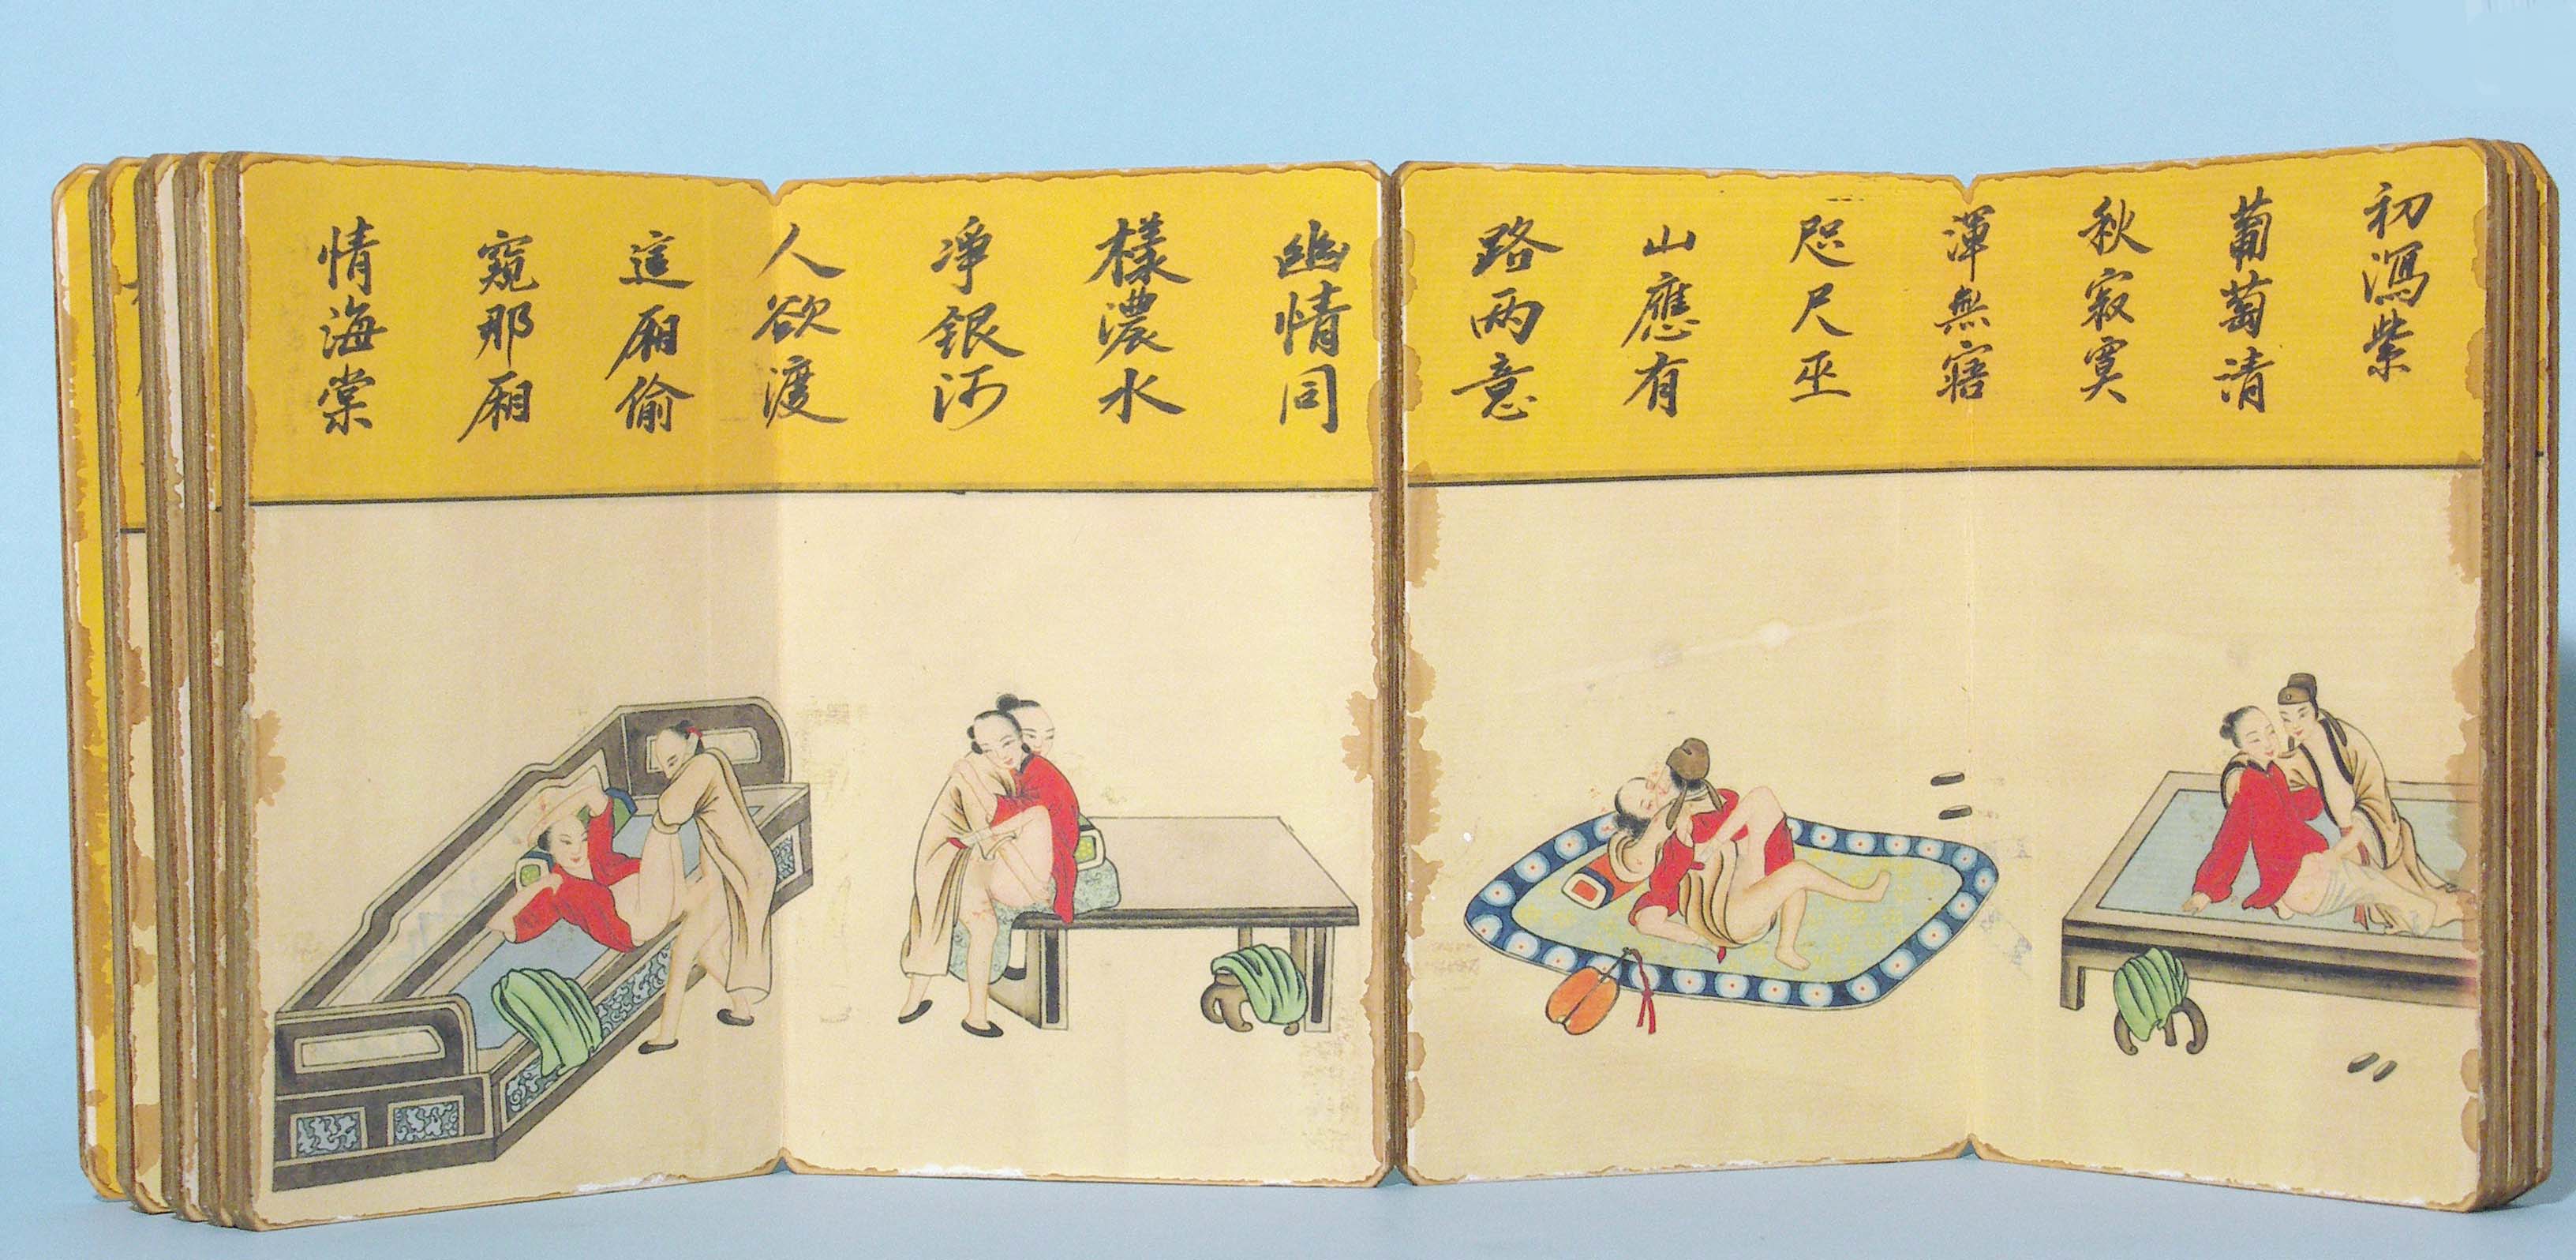 初瀉紫
葡萄清
秋寂寞
渾無寤
咫尺巫
山應有
路两意
幽情同
樣濃水
凈銀河
人欲渡
這廂偷
窺那廂
情海棠